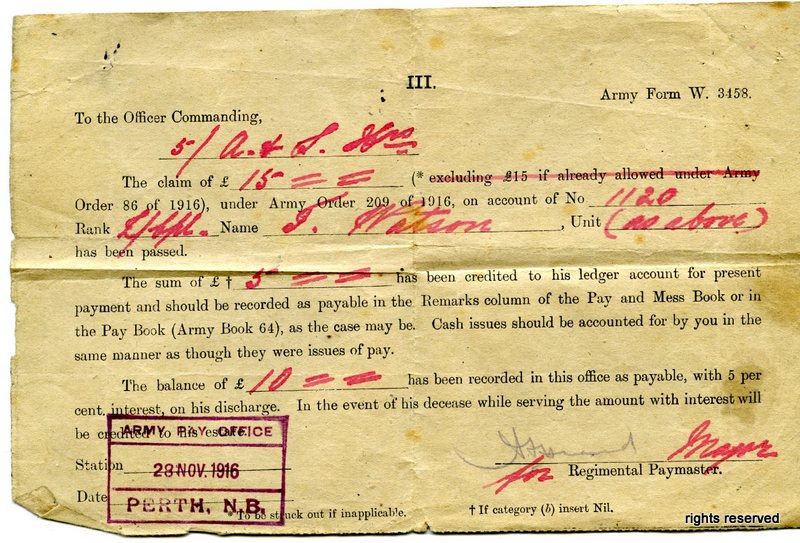 III.
Army Form W. 3458.
To the Officer Commanding,
5/ A. & S. Hrs
The claim of £ 15 = = (* excluding £15 if already allowed under Army
Order 86 of 1916), under Army Order 209 of 1916, on account of No 1120
Rank L/Cpl. Name J. Watson, Unit (as above)
has been passed.
The sum of £ † 5 = = has been credited to his ledger account for present
payment and should be recorded as payable in the Remarks column of the Pay and Mess Book or in
the Pay Book (Army Book 64), as the case may be. Cash issues should be accounted for by you in the
same manner as though they were issues of pay.
The balance of £ 10 = = has been recorded in this office as payable, with 5 per
cent. interest, on his discharge. In the event of his decease while serving the amount with interest will
be credited to his estate.
ARMY PAY OFFICE
28 NOV. 1916
PERTH, N.B.
Station
Date
Major
for Regimental Paymaster.
* To be struck out if inapplicable.
† If category (b) insert Nil.
rights reserved